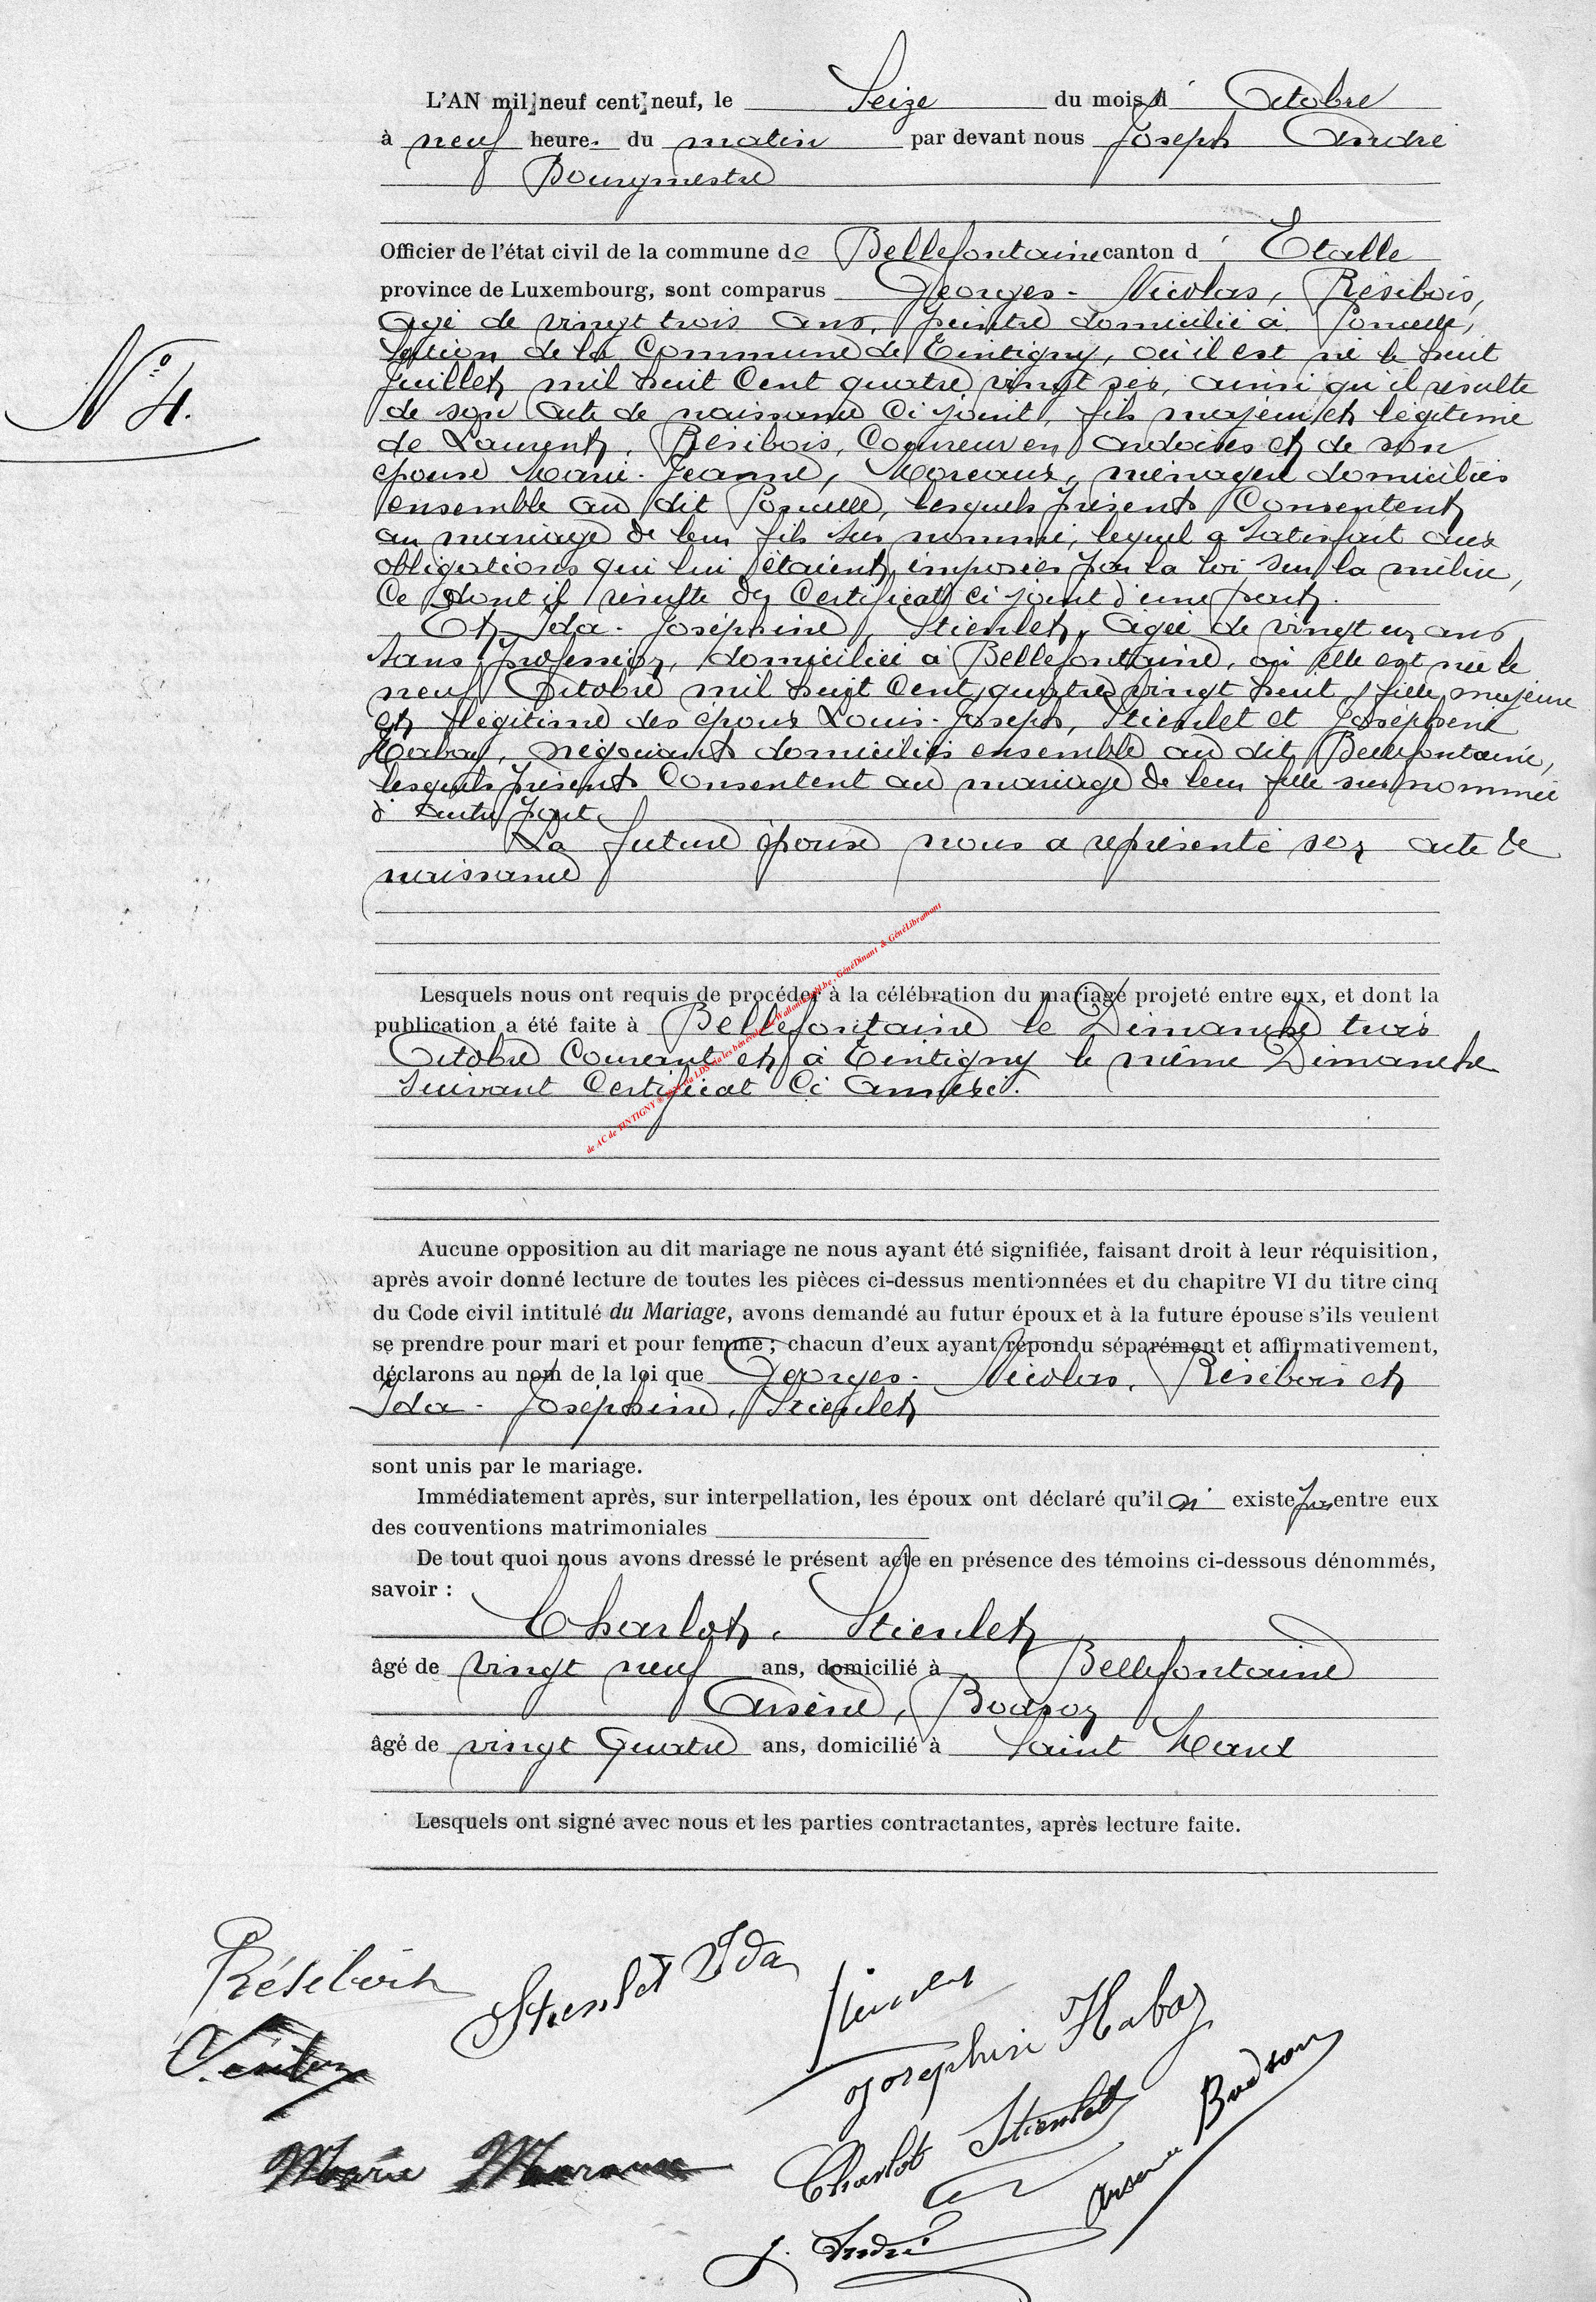 L'AN mil neuf cent neuf, le Seize du mois d' Octobre
à neuf heure. du matin par devant nous Joseph André
Bourgmestre
Officier de l'état civil de la commune de Bellefontaine canton d' Etalle
province de Luxembourg, sont comparus Georges - Nicolas, Résibois,
agé de vingt trois ans, peintre domicilié à Poncelle,
section de la Commune de Tintigny, où il est né le huit
Juillet mil huit Cent quatre vingt six, ainsi qu'il résulte
de son acte de naissance ci joint, fils majeur et légitime
N° 4.
de Laurent, Résibois, Couvreur en ardoises et de son
épouse Marie - Jeanne, Moreaux, ménagère domiciliés
ensemble au dit Poncelle, lesquels présents Consentent
au mariage de leur fils sus nommé, lequel a satisfait aux
obligations qui lui étaient imposées par la loi sur la milice,
Ce dont il résulte du Certificat ci joint d'une part.
Et Ida - Joséphine, Stienlet, agée de vingt un ans
sans profession, domiciliée à Bellefontaine, où elle est née le
neuf Octobre mil huit Cent quatre vingt huit, fille majeure
et légitime des époux Louis - Joseph, Stienlet et Joséphine
Habay, négociants domiciliés ensemble au dit Bellefontaine,
lesquels présents Consentent au mariage de leur fille sus nommée
d'autre part.
La future épouse nous a représenté son acte de
naissance
Lesquels nous ont requis de procéder à la célébration du mariage projeté entre eux, et dont la
publication a été faite à Bellefontaine le Dimanche trois
Octobre Courant et à Tintigny le même Dimanche
suivant Certificat Ci Annexé.
de AC de TINTIGNY
GénéDinant & GénéLibramont
Aucune opposition au dit mariage ne nous ayant été signifiée, faisant droit à leur réquisition,
après avoir donné lecture de toutes les pièces ci-dessus mentionnées et du chapitre VI du titre cinq
du Code civil intitulé du Mariage, avons demandé au futur époux et à la future épouse s'ils veulent
se prendre pour mari et pour femme ; chacun d'eux ayant répondu séparément et affirmativement,
déclarons au nom de la loi que Georges - Nicolas, Résibois et
Ida - Joséphine, Stienlet
sont unis par le mariage.
Immédiatement après, sur interpellation, les époux ont déclaré qu'il n' existe pas entre eux
des conventions matrimoniales
De tout quoi nous avons dressé le présent acte en présence des témoins ci-dessous dénommés,
savoir :
Charlot, Stienlet
âgé de vingt neuf ans, domicilié à Bellefontaine
Arsène, Bodson
âgé de vingt quatre ans, domicilié à Saint Mard
Lesquels ont signé avec nous et les parties contractantes, après lecture faite.
Résibois
Stienlet Ida
Stienlet
Joséphine Habay
Charlot Stienlet
Arsène Bodson
Marie
J. André